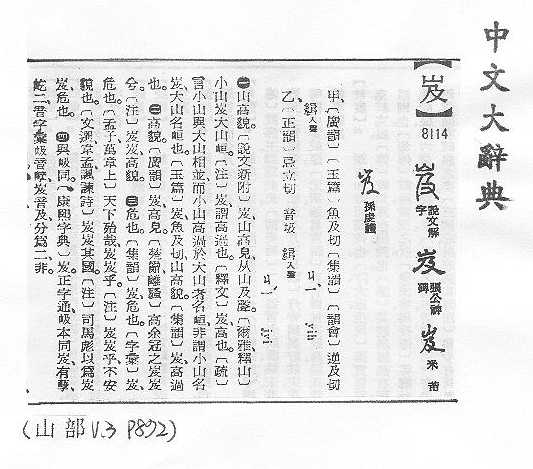 中文大辭典
【岌】
8114
說文解字
張公神碑
米芾
孫虔禮
甲、〔廣韻〕〔玉篇〕魚及切〔集韻〕〔韻會〕逆及切
緝入聲 ㄐㄧˊ yih
乙、〔正韻〕忌立切 音圾 緝入聲
ㄐㄧˊ jyi
㊀山高貌。〔說文新附〕岌、山高皃、从山及聲。〔爾雅釋山〕
小山岌大山峘。〔注〕岌、謂高過也。〔釋文〕岌、高也。〔疏〕
言小山與大山相並而小山高過於大山者名峘、非謂小山名
岌、大山名峘也。〔玉篇〕岌、魚及切、山高貌。〔集韻〕岌、高過
也。㊁高貌。〔廣韻〕岌、高皃。〔楚辭離騷〕高余冠之岌岌
兮。〔注〕岌岌、高貌。㊂危也。〔集韻〕岌、危也。〔字彙〕岌、
危也。〔孟子萬章上〕天下殆哉岌岌乎。〔注〕岌岌乎不安
貌也。〔文選韋孟諷諫詩〕岌岌其國。〔注〕司馬彪以爲岌
岌、危也。㊃與圾同。〔康熙字典〕岌、正字通、圾本同岌、有孽
屹二音、字彙圾音岋、岌音及、分爲二、非。
(山部 V.3 P892)